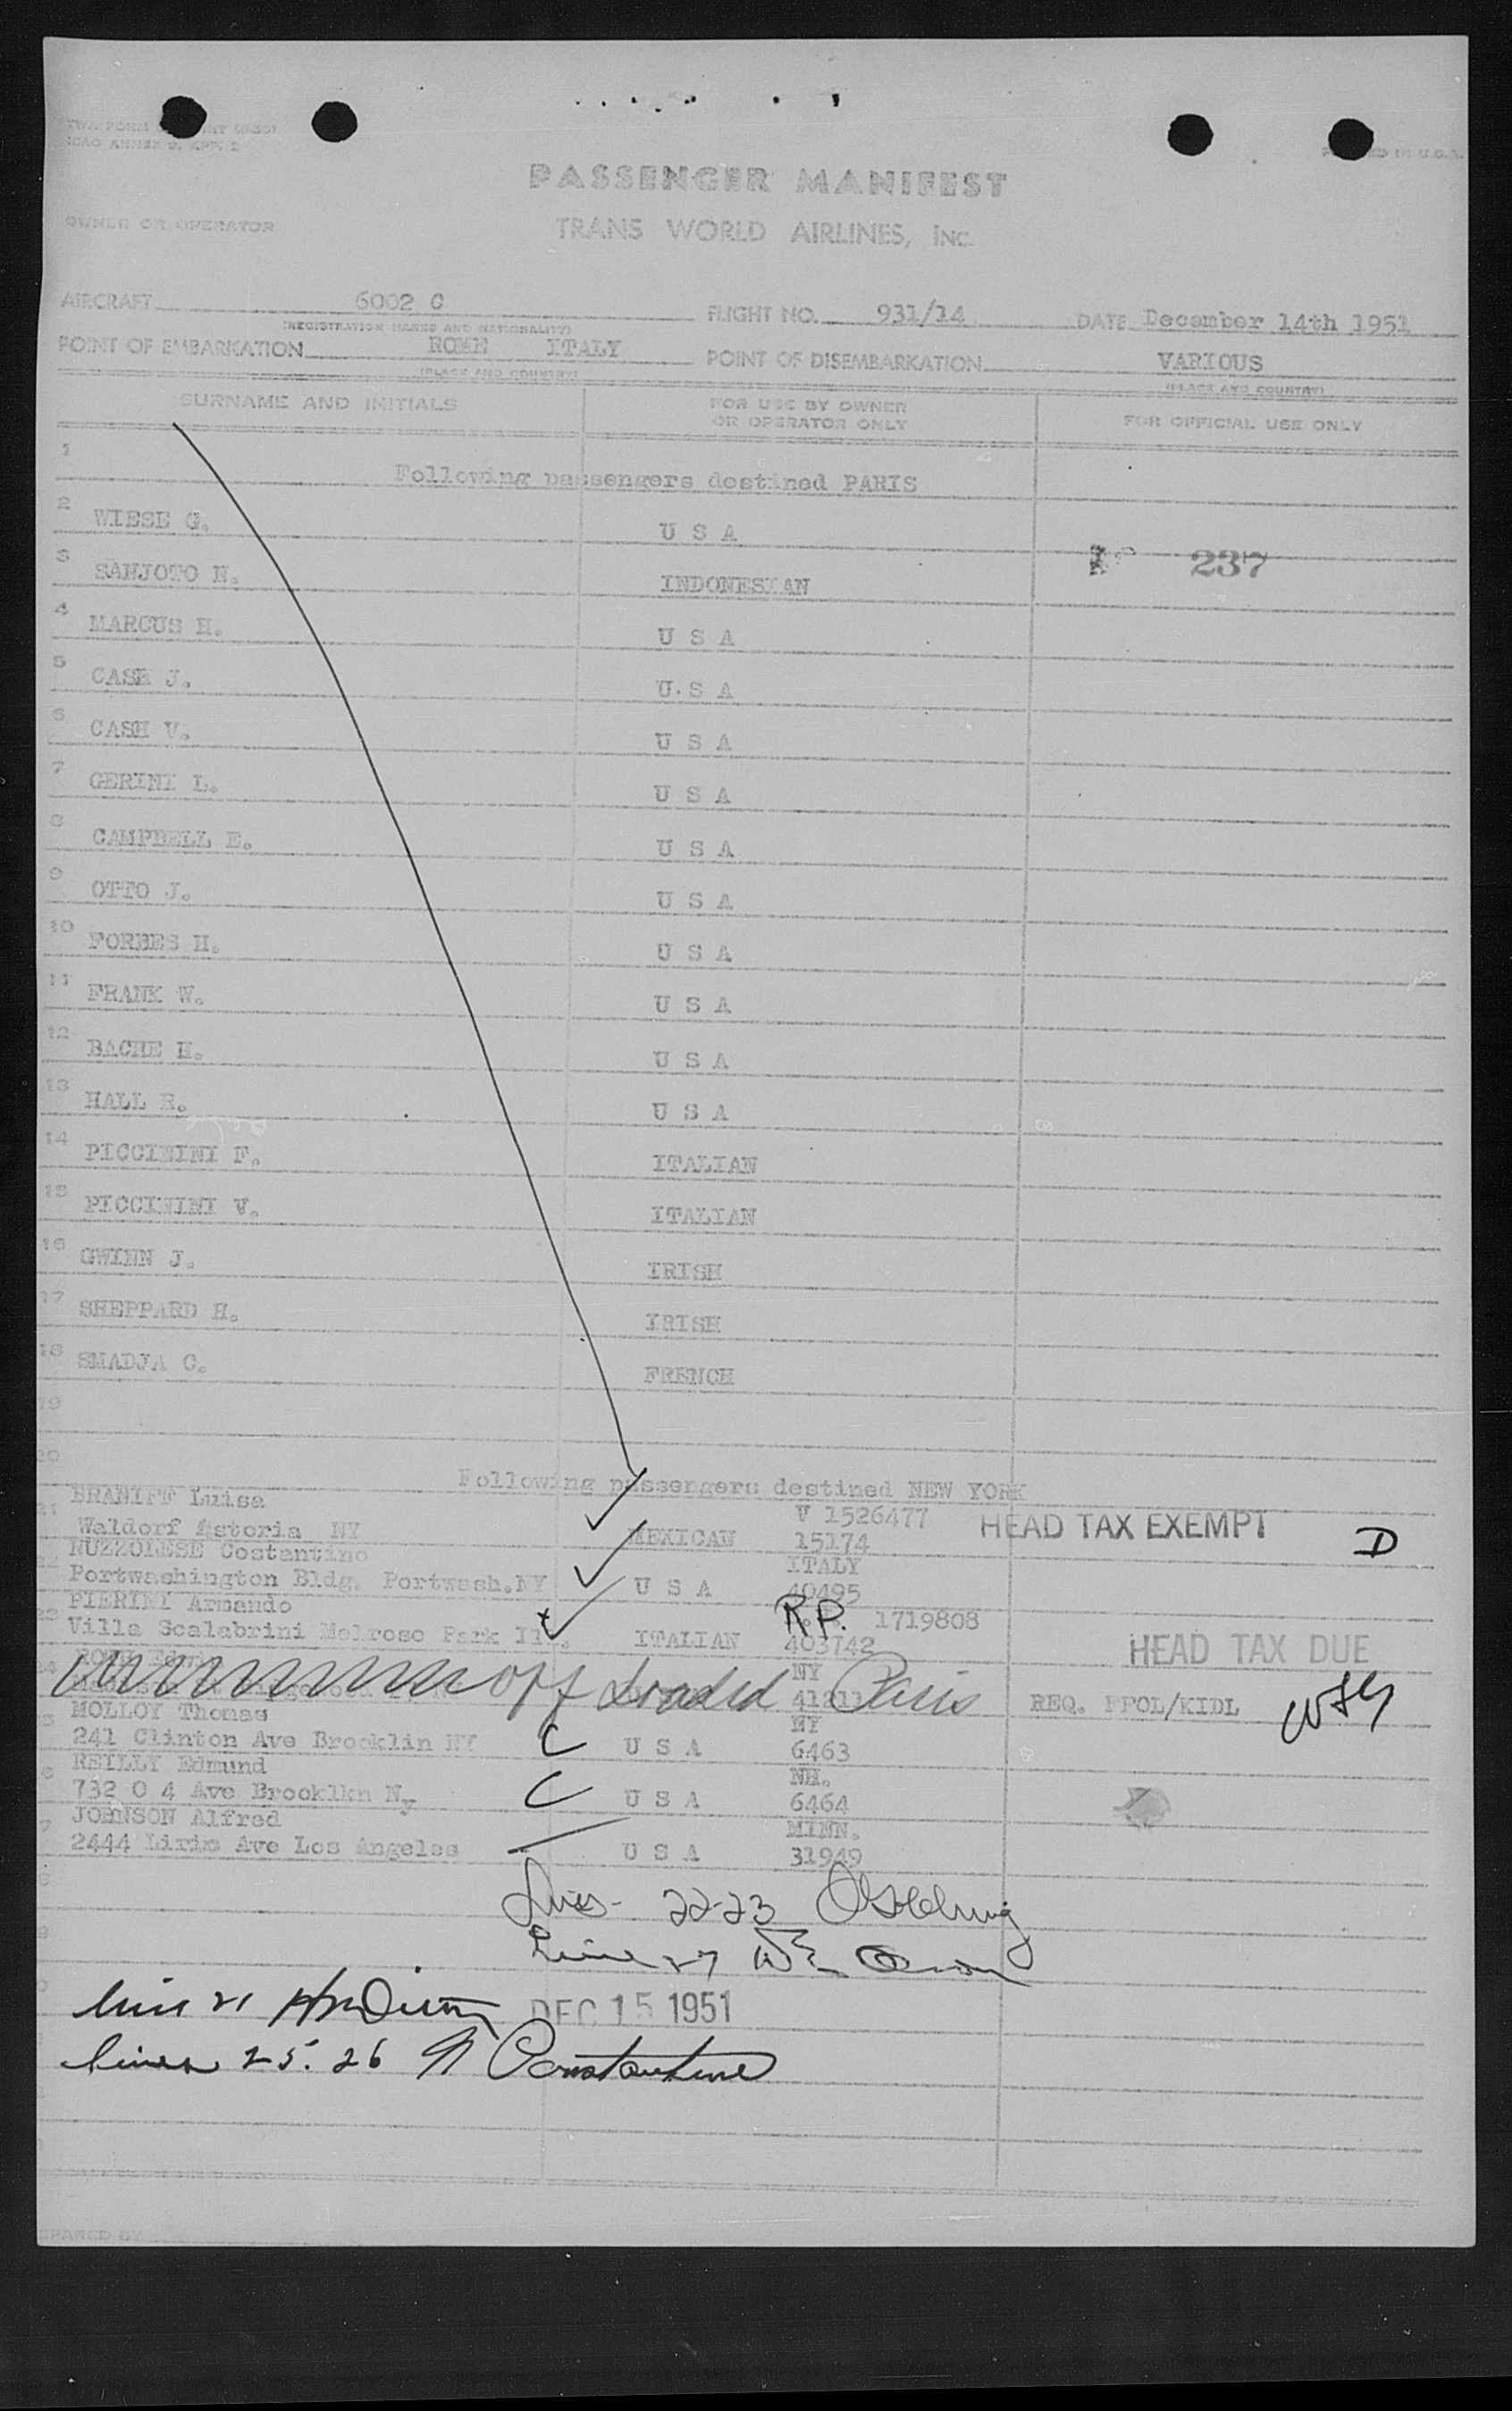 PASSENGER MANIFEST
OWNER OR OPERATOR TRANS WORLD AIRLINES, INC.
AIRCRAFT 6002 C FLIGHT NO. 931/14 DATE December 14th 1951
(REGISTRATION MARKS AND NATIONALITY)
POINT OF EMBARKATION ROME ITALY POINT OF DISEMBARKATION VARIOUS
(PLACE AND COUNTRY) (PLACE AND COUNTRY)
SURNAME AND INITIALS FOR USE BY OWNER OR OPERATOR ONLY FOR OFFICIAL USE ONLY
1 Following passengers destined PARIS
2 WIESE G. U S A
237
3 SANJOTO N. INDONESIAN
4 MARCUS H. U S A
5 CASH J. U.S A
6 CASH V. U S A
7 GERINI L. U S A
8 CAMPBELL E. U S A
9 OTTO J. U S A
10 FORBES H. U S A
11 FRANK W. U S A
12 BACHE H. U S A
13 HALL R. U S A
14 PICCININI F. ITALIAN
15 PICCININI V. ITALIAN
16 GWINN J. IRISH
17 SHEPPARD H. IRISH
18 SMADJA C. FRENCH
19
20 Following passengers destined NEW YORK
BRANIFF Luisa V 1526477 HEAD TAX EXEMPT D
21 Waldorf Astoria NY MEXICAN 15174
NUZZOLESE Costantino ITALY
Portwashington Bldg. Portwash.NY U S A 40495
PIERINI Armando R.P. 1719808
Villa Scalabrini Melrose Park Ill. ITALIAN 403742 HEAD TAX DUE
24 NY
off Loaded Paris REQ. PPOL/KIDL
MOLLOY Thomas NY
241 Clinton Ave Brooklin NY C U S A 6463
REILLY Edmund NH.
732 O 4 Ave Brooklkn Ny C U S A 6464
JOHNSON Alfred MINN.
2444 Ave Los Angeles U S A 31949
Lines - 22-23
Line 27
line 21
DEC 15 1951
lines 25. 26 Constantine